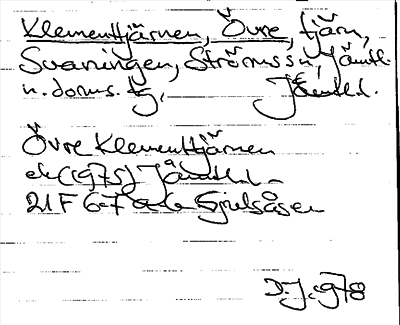 Klementtjärnen, Övre, tjärn,
Svaningen, Ströms sn, Jämtl.
n. doms. tg, Jämtl.l.
Övre Klementtjärnen
ek (1975) Jämtl.l.
21 F 6-7 Gjulsåsen
D.J. 1978